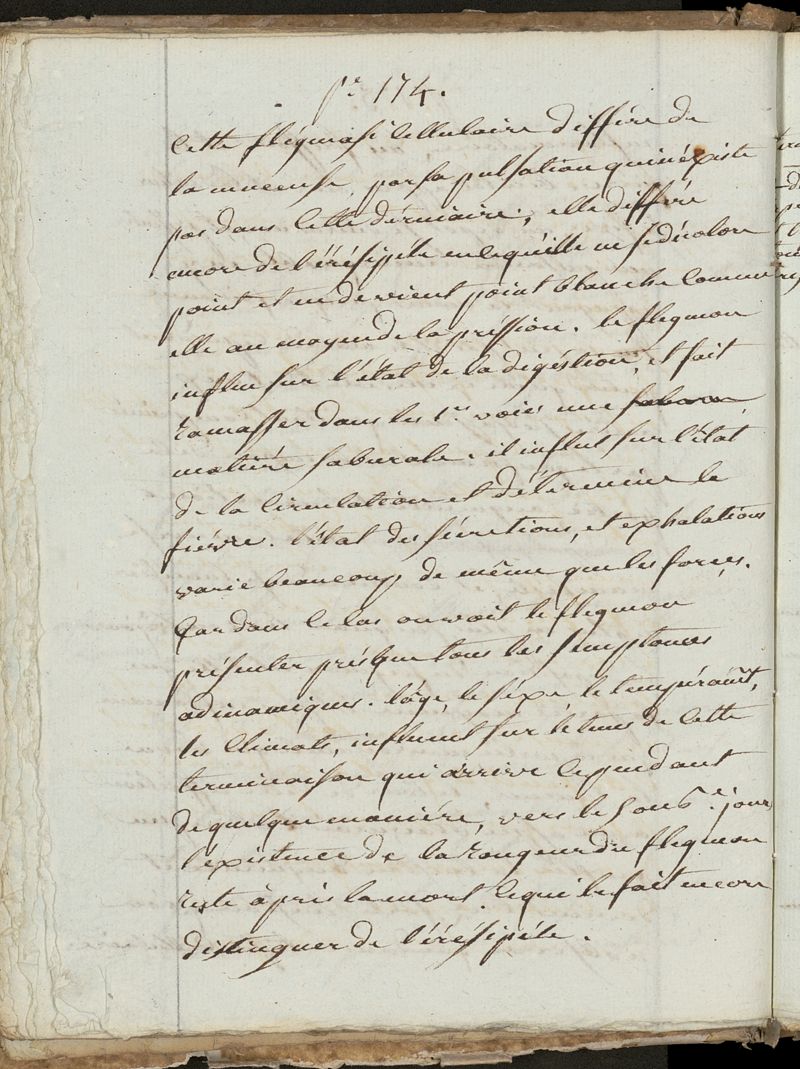 pe 174.
Cette flégmasi Cellulaire différe de
la muceuse, par sa pulsation qui n'éxiste
pas dans Cette dérniaire, elle différe
encore de l'érésipéle en ce qu'elle ne se décolore
point et ne devient point blanche Comme
elle au moyen de la préssion. le flegmon
influe sur l'état de la digéstion, et fait
ramasser dans les 1res voies une
matiére saburale. il influe sur l'état
de la Circulation et détermine la
fiévre. l'état des sécretions, et exhalations
varie beaucoup, de même que les forces.
Car dans Ce Cas on voit le flegmon
présenter présque tous les simptomes
adinamiques. l'âge, le séxe, le tempéramt,
les Climats, influent sur le tems de Cette
terminaison qui arrive Cependant
de quelque maniére, vers le jour
l'éxistence de la rougeur du flegmon
reste àpris la mort, Cequi le fait encore
distinguer de l'érésipéle.